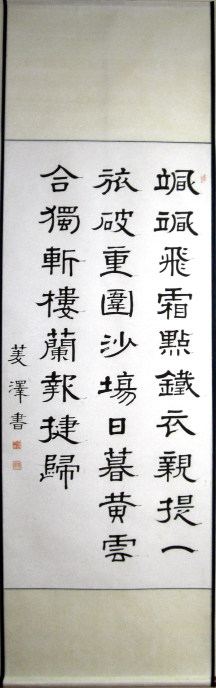 颯颯飛霜點鐵衣親提一
旅破重圍沙塲日暮黄雲
合獨斬樓蘭報捷歸
澤書